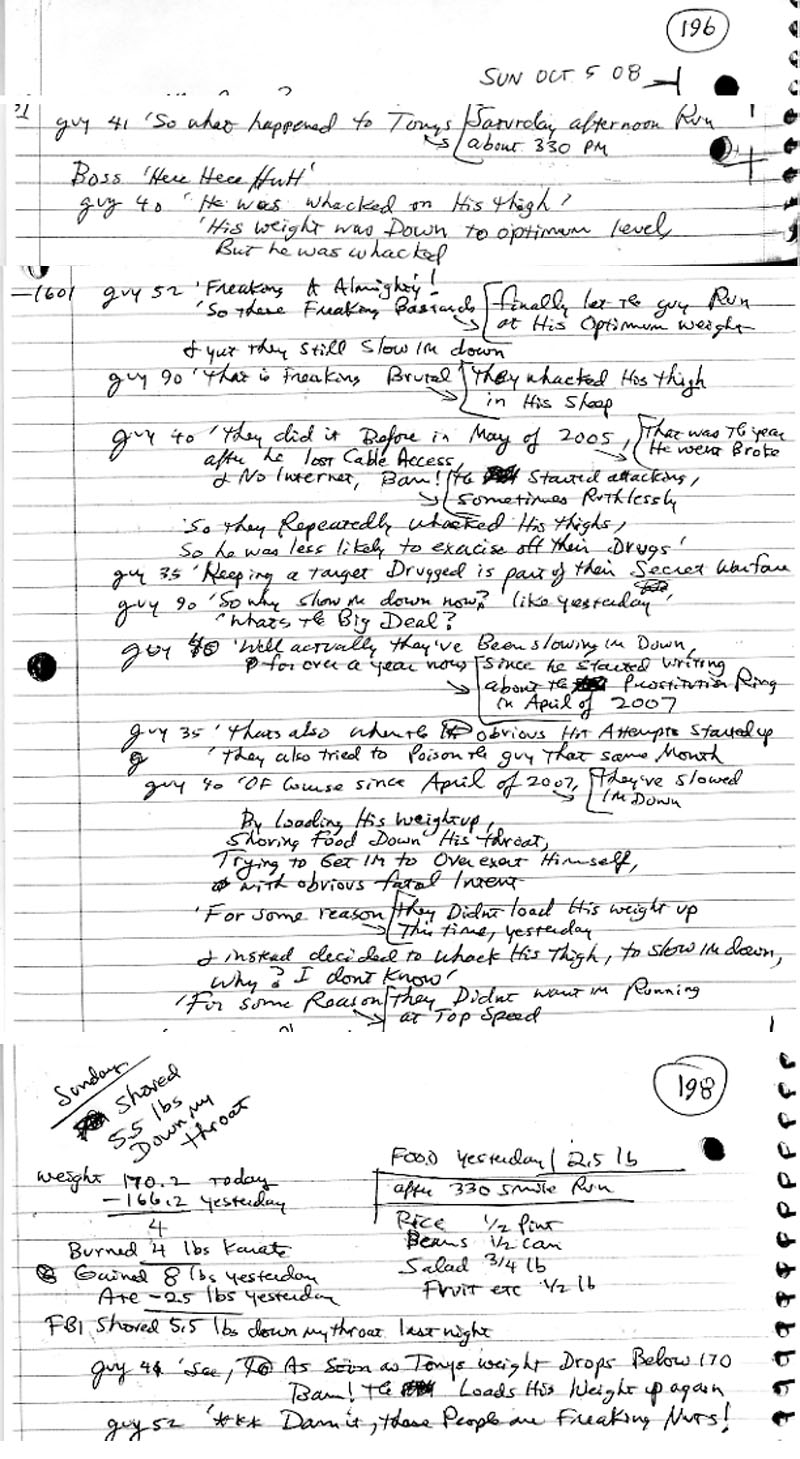 196
SUN OCT 5 08
guy 41 'So what happened to Tonys Saturday afternoon Run
about 330 PM
Boss 'Here Here Huff'
guy 40 'He was whacked on His thigh'
'His weight was Down to optimum level,
But he was whacked
-1601 guy 52 'Freaking A Almighty'!
'So these Freaking Bastards finally let the guy Run
at His Optimum weight
& yut they still Slow im down
guy 90 'That is Freaking Brutal They whacked His thigh
in His Sleep
guy 40 'They did it Before in May of 2005, That was the year
He went Broke
after he lost Cable Access,
& No Internet, Bam! the Started attacking,
sometimes Ruthlessly
'So they Repeatedly whacked His thighs,
So he was less likely to exercise off their Drugs'
guy 35 'Keeping a target Drugged is part of their Secret Warfare
guy 90 'So why slow im down now? like yesterday'
'Whats the Big Deal?
guy 40 'Well actually they've Been slowing im Down,
for over a year now since he started writing
about the Prostitution Ring
in April of 2007
guy 35 'Thats also when the obvious Hit Attempts Started up
'They also tried to Poison the guy That same Month
guy 40 'OF Course since April of 2007, They've slowed
im Down
By loading His weight up,
Shoving Food Down His throat,
Trying to Get im to Over exert Himself,
with obvious fatal Intent
'For some reason they Didnt load His weight up
This time, yesterday
& instead decided to whack His Thigh, to slow im down,
Why? I dont Know'
'For some Reason they Didnt want im Running
at Top Speed
198
Sunday
Shoved
5.5 lbs
Down my
throat
FOOD yesterday 2.5 lb
after 330 5 mile Run
Rice 1/2 Pint
Beans 1/2 can
Salad 3/4 lb
Fruit etc 1/2 lb
weight 170.2 today
-166.2 yesterday
4
Burned 4 lbs Karate
Gained 8 lbs yesterday
Ate -2.5 lbs yesterday
FBI Shoved 5.5 lbs down my throat last night
guy 41 'See, As Soon as Tonys weight Drops Below 170
Bam! the Loads His Weight up again
guy 52 '*** Damit, these People are Freaking Nuts!